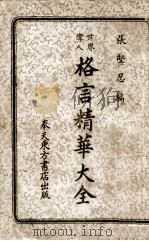 張堅忍編
世界偉人
格言精華大全
奉天東方書店出版